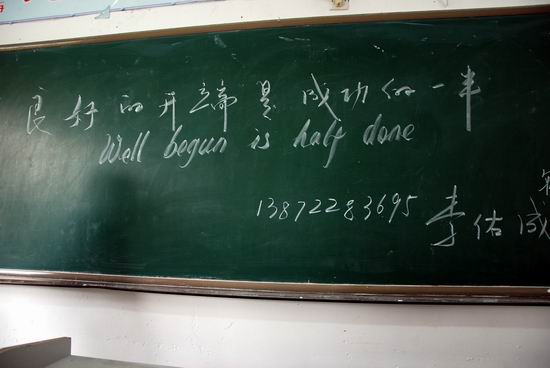 良好的开端是成功的一半
Well begun is half done
13872283695 李佑成